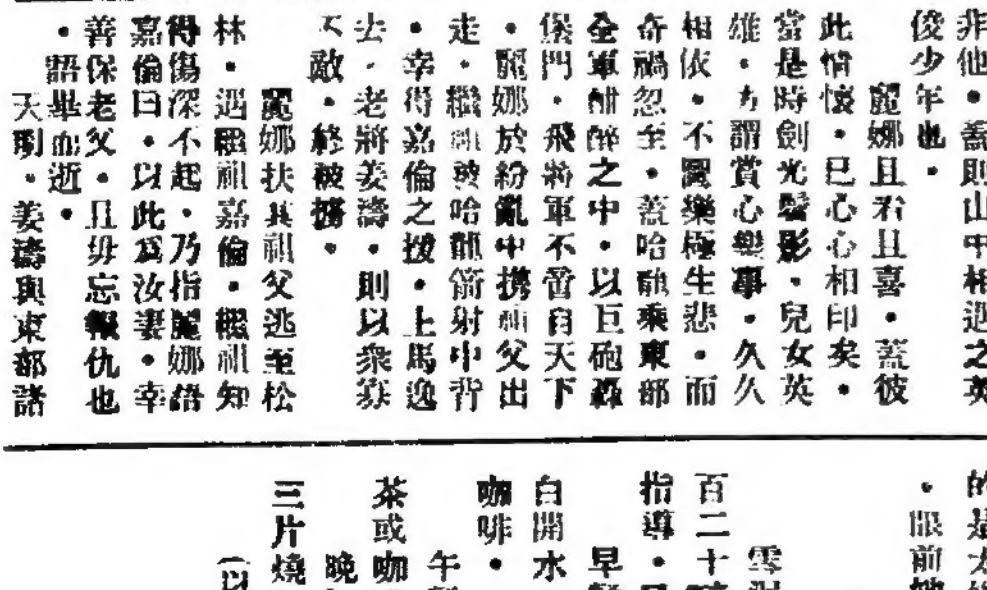 非他・蓋則山中相遇之英
俊少年也・
麗娜且看且喜・蓋彼
此情懷・已心心相印矣・
當是時劍光鬢影・兒女英
雄・方謂賞心樂事・久久
相依・不圖樂極生悲・而
奇禍忽至・蓋哈龍乘東部
全軍酣醉之中・以巨砲轟
堡門・飛將軍不啻自天下
・麗娜於紛亂中携祖父出
走・繼祖被哈龍箭射中背
・幸得嘉倫之援・上馬逸
去・老將姜濤・則以衆寡
不敵・終被擄・
麗娜扶其祖父逃至松
林・遇繼祖嘉倫・繼祖知
得傷深不起・乃指麗娜語
嘉倫曰・以此爲汝妻・幸
善保老父・且毋忘報仇也
・語畢而逝・
天明・姜濤與東部諸
的是太
・眼前她
零
百二十
指導・
早
自開水
咖啡・
午
茶或咖
晚
三片燒
（以